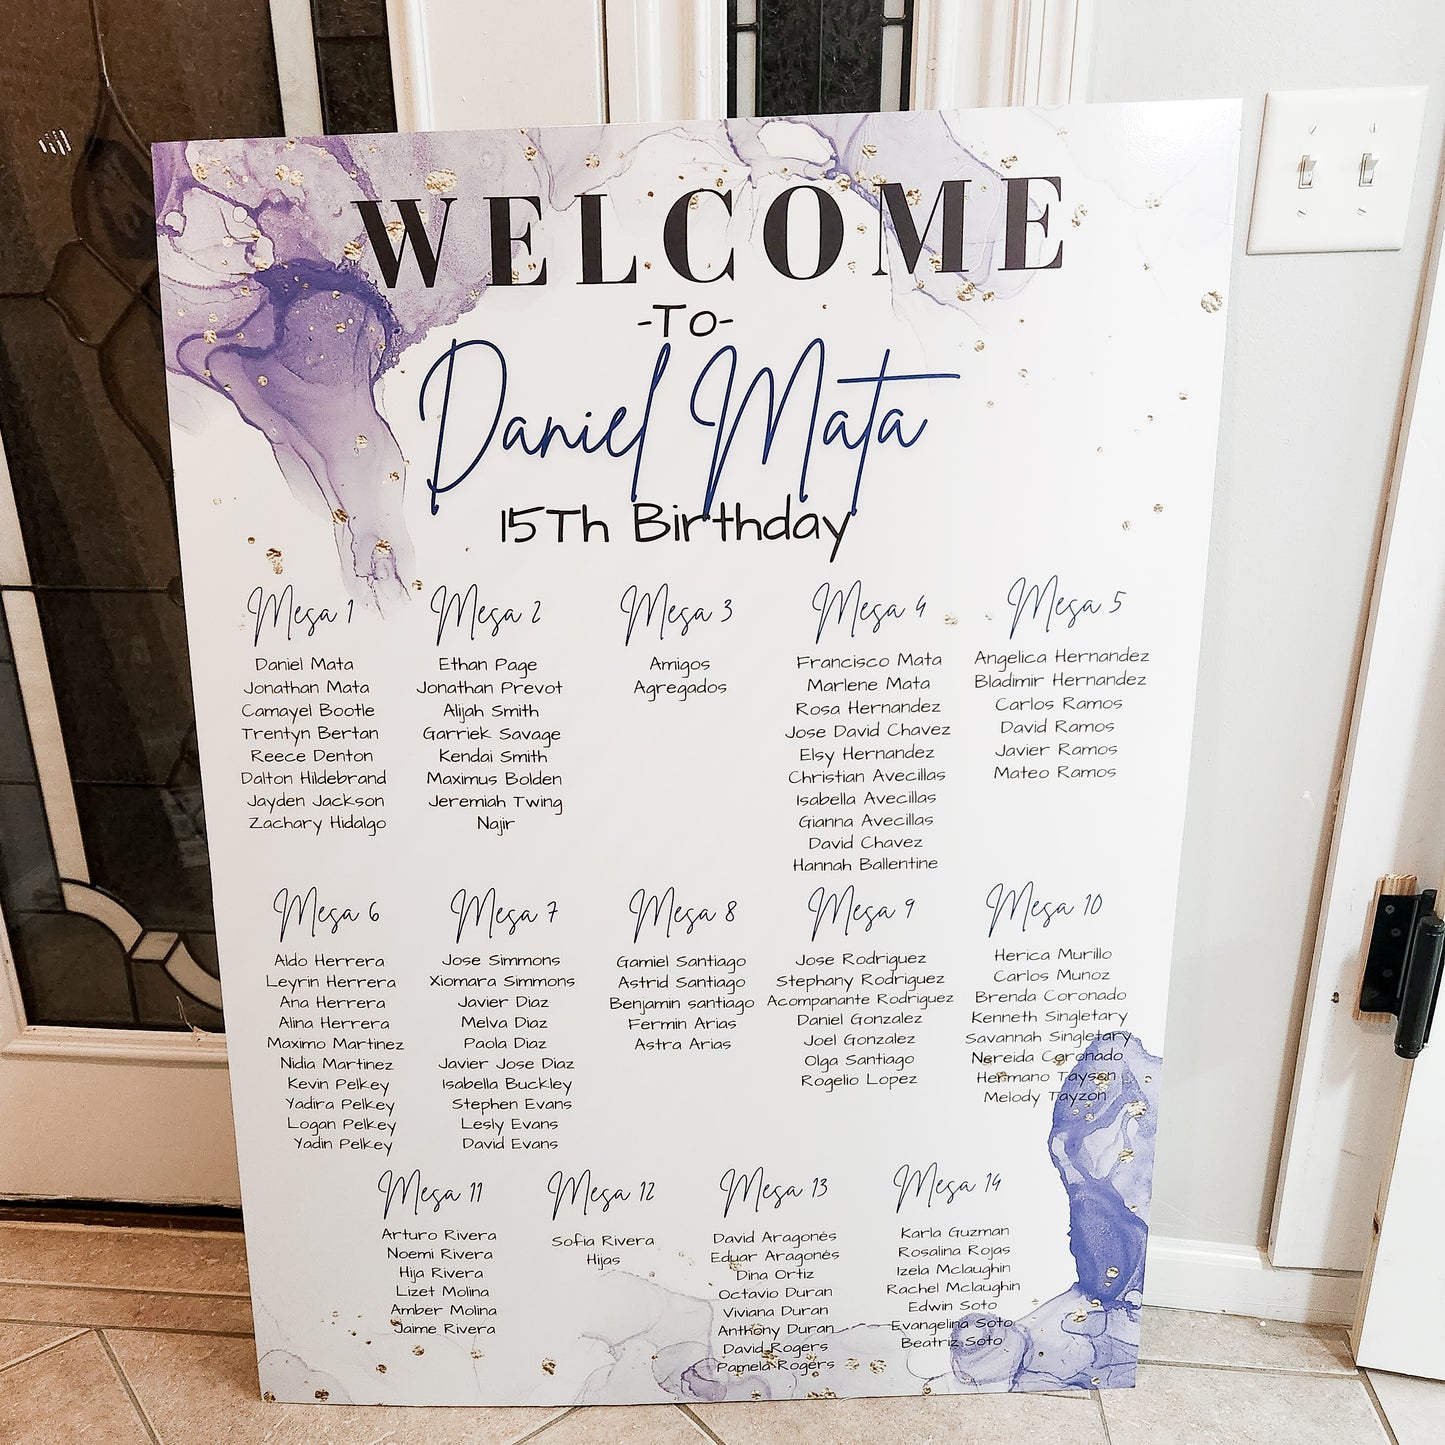 WELCOME
-To-
Daniel Mata
15Th Birthday
Mesa 1
Daniel Mata
Jonathan Mata
Camayel Bootle
Trentyn Bertan
Reece Denton
Dalton Hildebrand
Jayden Jackson
Zachary Hidalgo
Mesa 2
Ethan Page
Jonathan Prevot
Alijah Smith
Garriek Savage
Kendai Smith
Maximus Bolden
Jeremiah Twing
Najir
Mesa 3
Amigos
Agregados
Mesa 4
Francisco Mata
Marlene Mata
Rosa Hernandez
Jose David Chavez
Elsy Hernandez
Christian Avecillas
Isabella Avecillas
Gianna Avecillas
David Chavez
Hannah Ballentine
Mesa 5
Angelica Hernandez
Bladimir Hernandez
Carlos Ramos
David Ramos
Javier Ramos
Mateo Ramos
Mesa 6
Aldo Herrera
Leyrin Herrera
Ana Herrera
Alina Herrera
Maximo Martinez
Nidia Martinez
Kevin Pelkey
Yadira Pelkey
Logan Pelkey
Yadin Pelkey
Mesa 7
Jose Simmons
Xiomara Simmons
Javier Diaz
Melva Diaz
Paola Diaz
Javier Jose Diaz
Isabella Buckley
Stephen Evans
Lesly Evans
David Evans
Mesa 8
Gamiel Santiago
Astrid Santiago
Benjamin santiago
Fermin Arias
Astra Arias
Mesa 9
Jose Rodriguez
Stephany Rodriguez
Acompanante Rodriguez
Daniel Gonzalez
Joel Gonzalez
Olga Santiago
Rogelio Lopez
Mesa 10
Herica Murillo
Carlos Munoz
Brenda Coronado
Kenneth Singletary
Savannah Singletary
Nereida Coronado
Hermano Tayson
Melody Tayzon
Mesa 11
Arturo Rivera
Noemi Rivera
Hija Rivera
Lizet Molina
Amber Molina
Jaime Rivera
Mesa 12
Sofia Rivera
Hijas
Mesa 13
David Aragonés
Eduar Aragonés
Dina Ortiz
Octavio Duran
Viviana Duran
Anthony Duran
David Rogers
Pamela Rogers
Mesa 14
Karla Guzman
Rosalina Rojas
Izela Mclaughin
Rachel Mclaughin
Edwin Soto
Evangelina Soto
Beatriz Soto